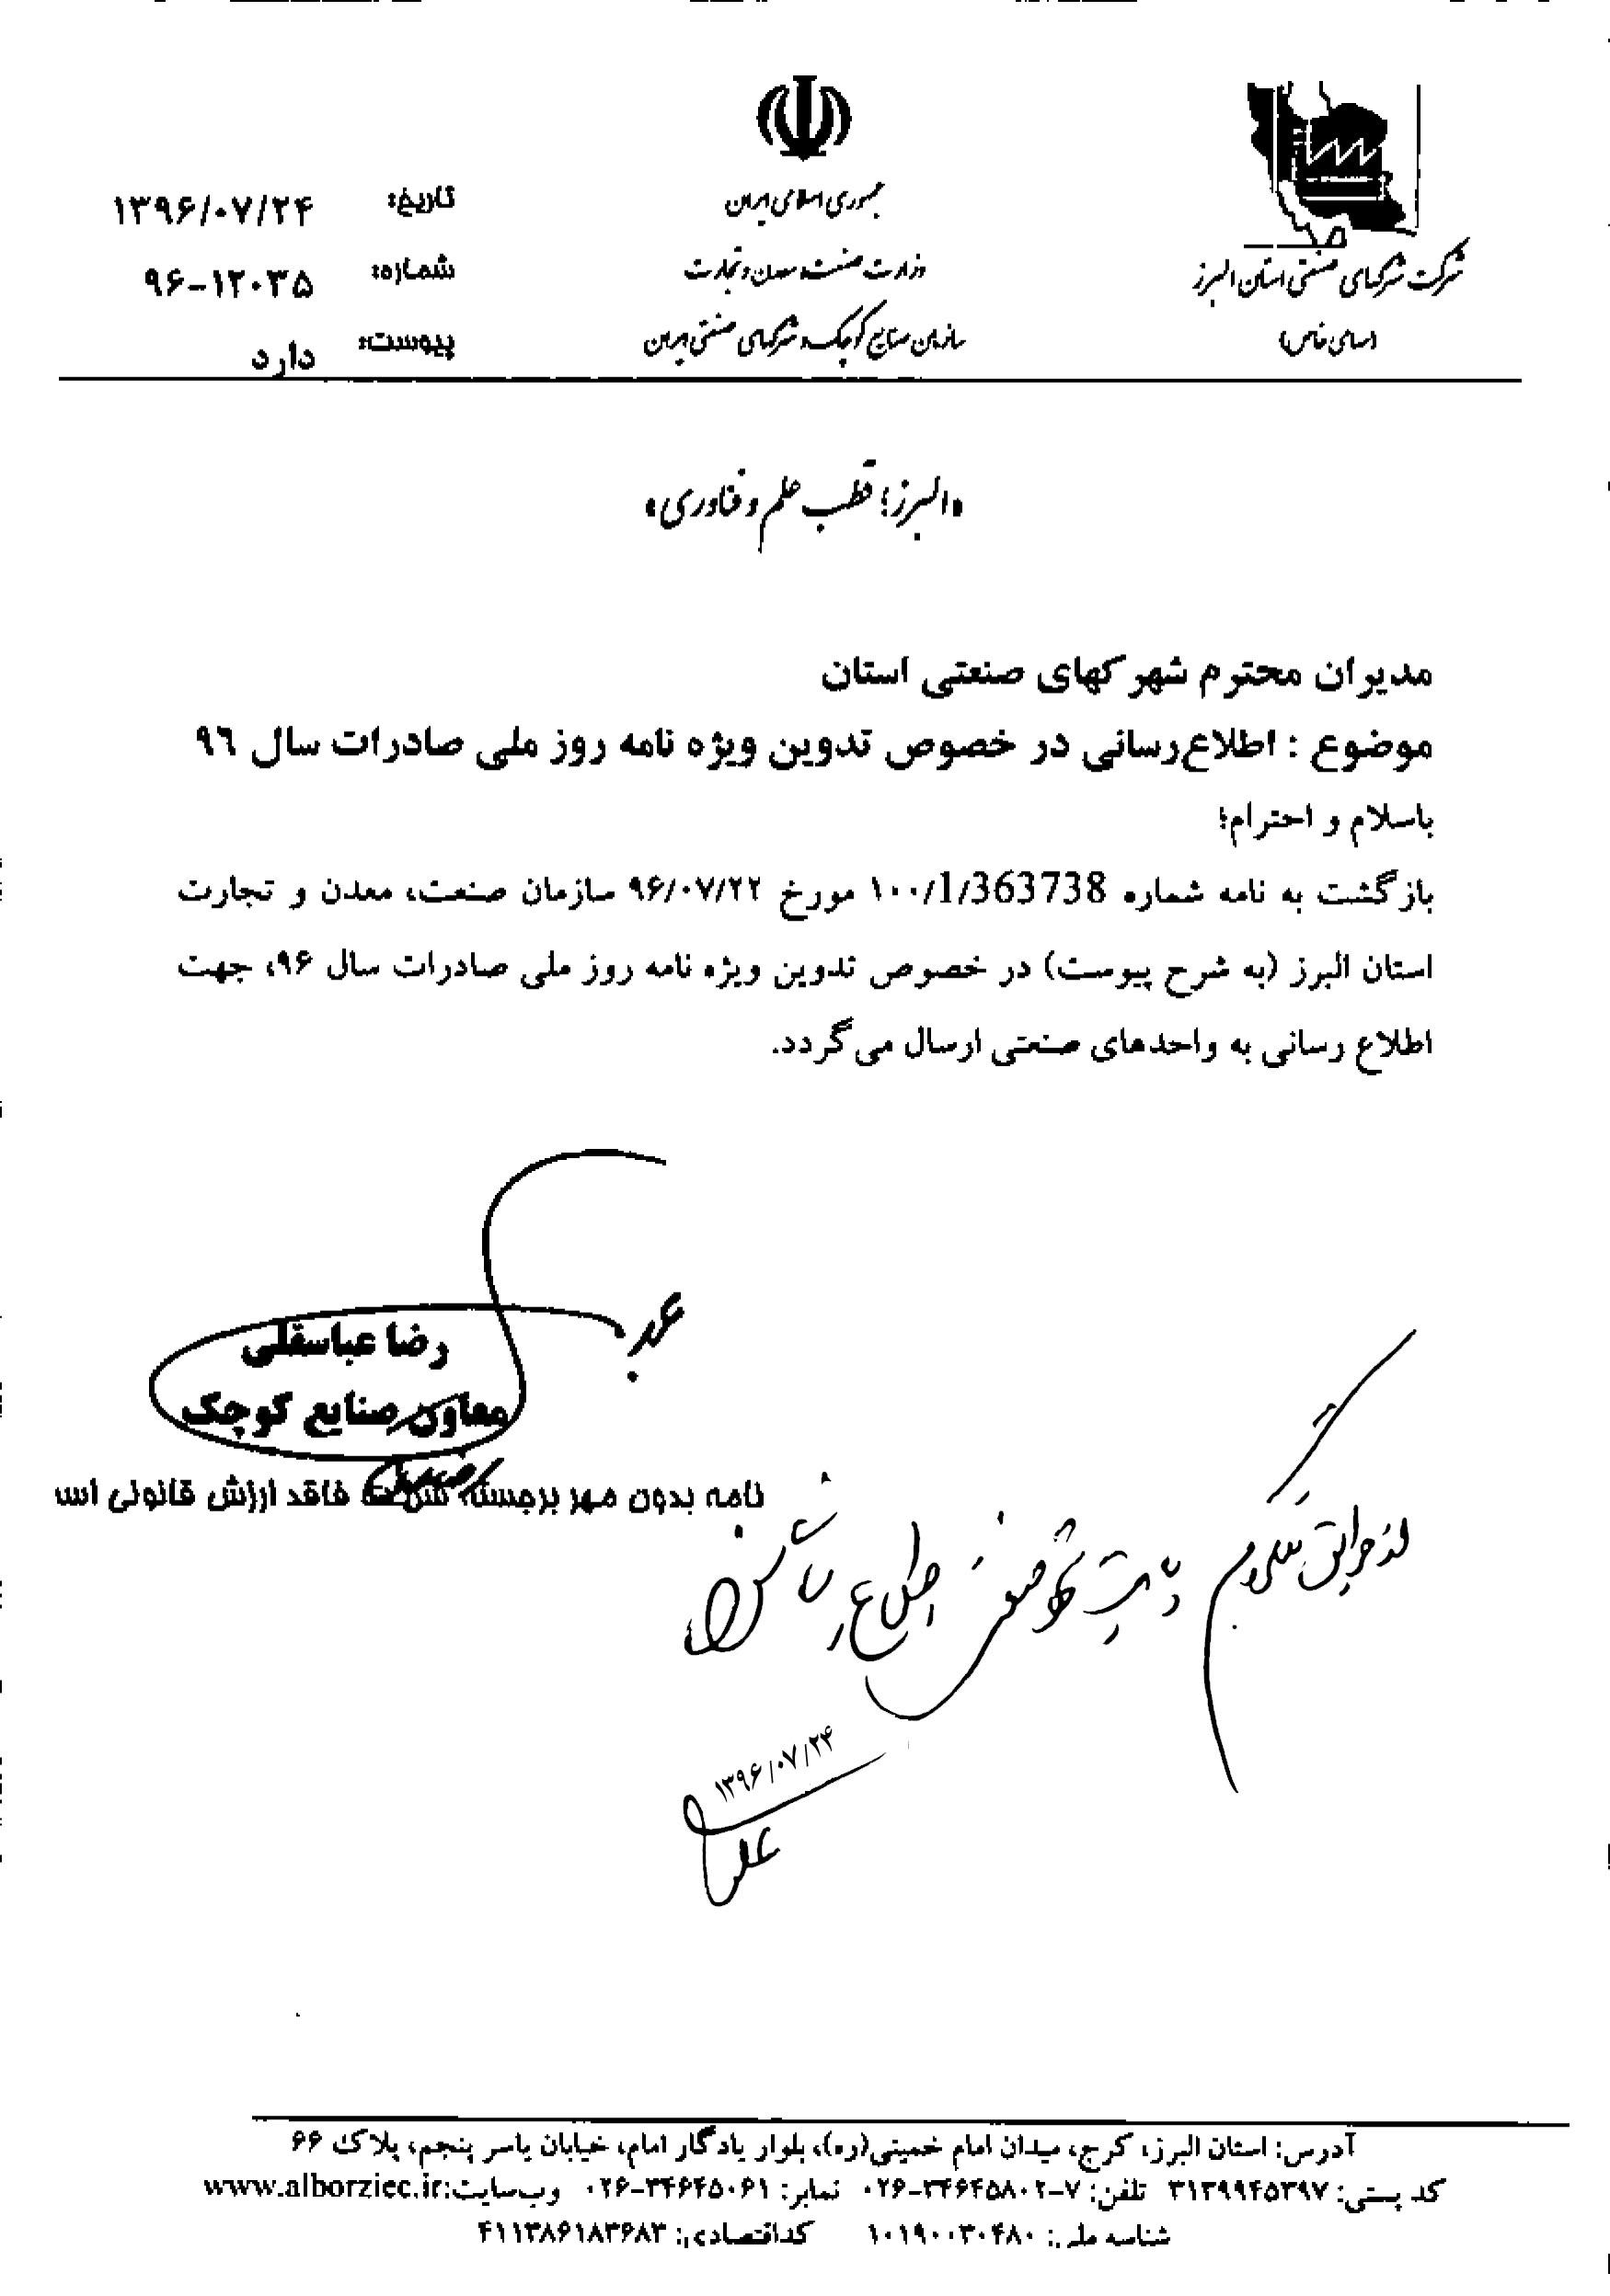 جمهوری اسلامی ایران
وزارت صنعت، معدن و تجارت
سازمان صنایع کوچک و شهرکهای صنعتی ایران
شرکت شهرکهای صنعتی استان البرز
(سهامی خاص)
تاریخ: ۱۳۹۶/۰۷/۲۴
شماره: ۹۶-۱۲۰۳۵
پیوست: دارد
«البرز؛ قطب علم و فناوری»
مدیران محترم شهرکهای صنعتی استان
موضوع : اطلاع‌رسانی در خصوص تدوین ویژه نامه روز ملی صادرات سال ۹۶
باسلام و احترام؛
بازگشت به نامه شماره ۱۰۰/1/363738 مورخ ۹۶/۰۷/۲۲ سازمان صنعت، معدن و تجارت
استان البرز (به شرح پیوست) در خصوص تدوین ویژه نامه روز ملی صادرات سال ۹۶، جهت
اطلاع رسانی به واحدهای صنعتی ارسال می‌گردد.
رضا عباسقلی
معاون صنایع کوچک
نامه بدون مهر برجسته فاقد ارزش قانونی اس
اطلاع رسانی
۱۳۹۶/۰۷/۲۴
آدرس: استان البرز، کرج، میدان امام خمینی(ره)، بلوار یادگار امام، خیابان یاسر پنجم، پلاک ۶۶
کد پستی: ۳۱۳۹۹۴۵۳۹۷ تلفن: ۷-۰۲۶-۳۴۶۴۵۸۰۲ نمابر: ۰۲۶-۳۴۶۴۵۰۶۱ وب‌سایت:www.alborziec.ir
شناسه ملی: ۱۰۱۹۰۰۳۰۴۸۰ کداقتصادی: ۴۱۱۳۸۶۱۸۳۶۸۳